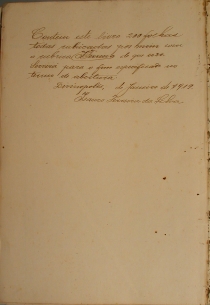 Contem este livro 200 folhas
todas rubricadas por mim com
a rubrica de que uso
Servirá para o fim especificado no
termo de abertura.
de Janeiro de 1909.